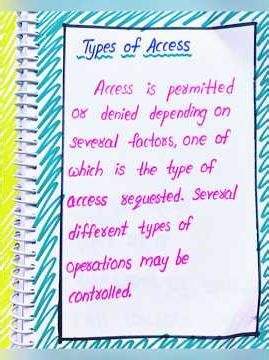 Types of Access
Access is permitted
or denied depending on
several factors, one of
which is the type of
access requested. Several
different types of
operations may be
controlled.